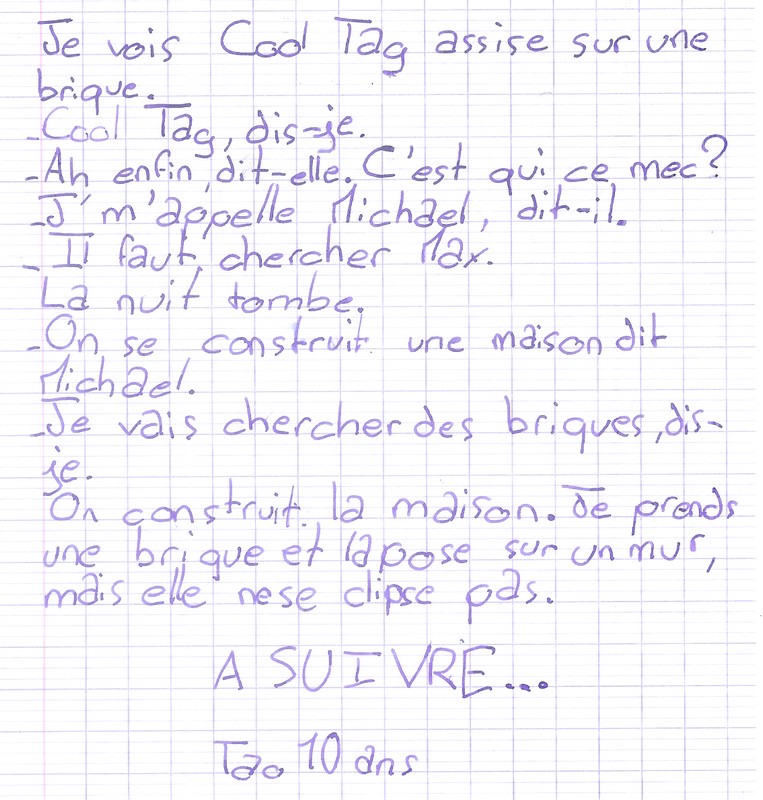 Je vois Cool Tag assise sur une
brique.
-Cool Tag, dis-je.
-Ah enfin, dit-elle. C'est qui ce mec?
-J'm'appelle Michael, dit-il.
- Il faut chercher Max.
La nuit tombe.
-On se construit une maison dit
Michael.
-Je vais chercher des briques, dis-
je.
On construit la maison. Je prends
une brique et la pose sur un mur,
mais elle ne se clipse pas.
A SUIVRE...
Tao 10 ans